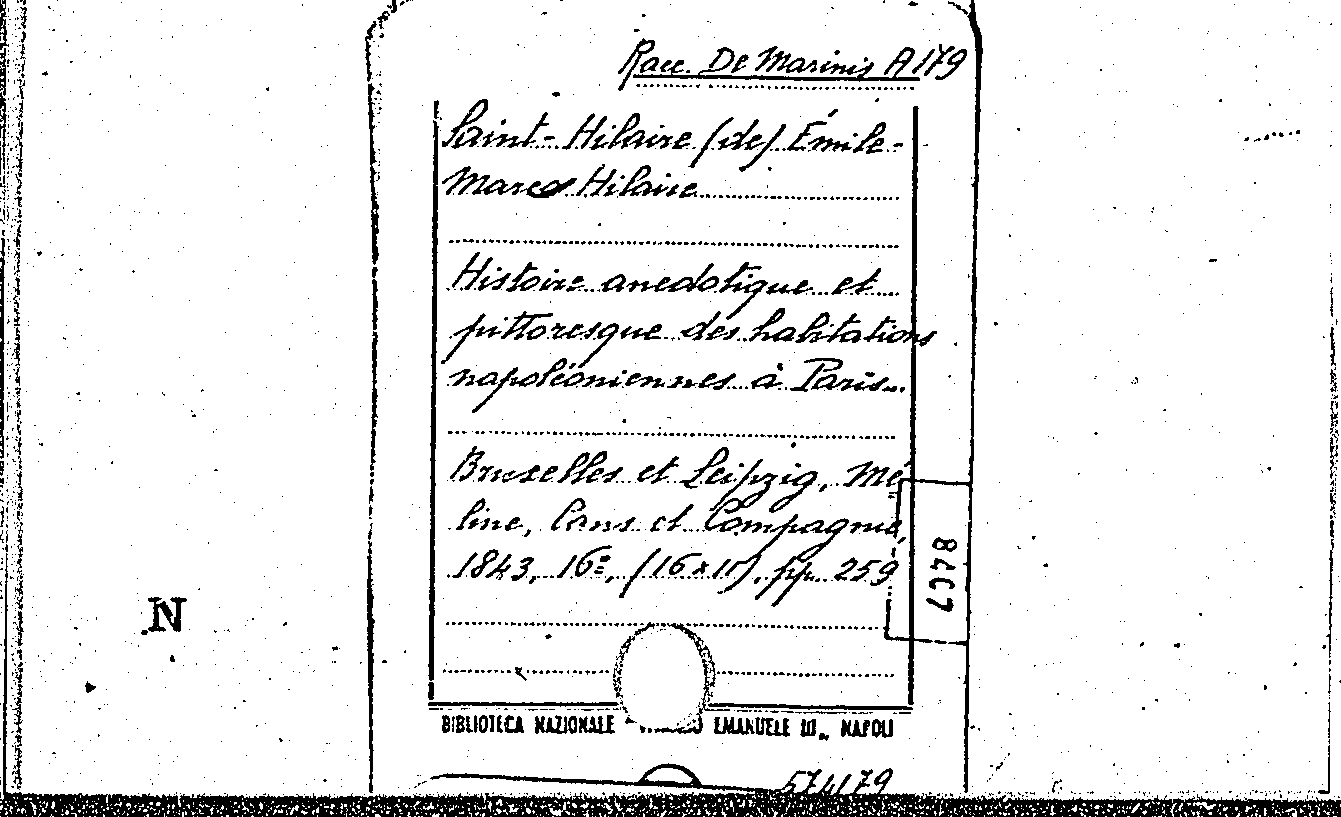 Racc. De Marinis A 179
Saint-Hilaire (de) Émile-
Marco Hilaire
Histoire anedotique et
pittoresque des habitations
napoléoniennes à Paris..
Bruxelles et Leipzig, Mé
line, Cans et Compagnie,
1843, 16º, (16x11), pp. 259
8407
N
BIBLIOTECA NAZIONALE EMANUELE III„ NAPOLI
574179